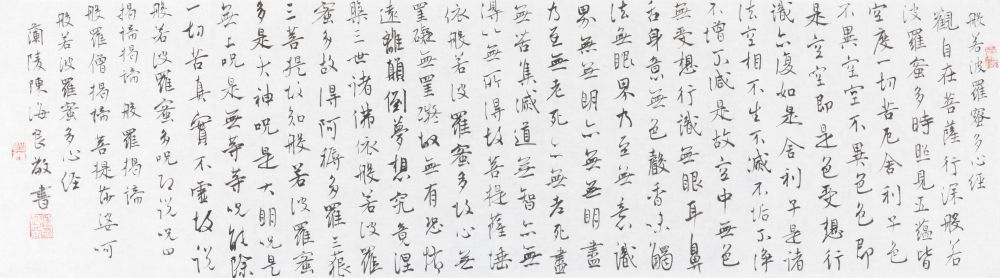 般若波羅蜜多心經
觀自在菩薩行深般若
波羅蜜多時照見五蘊皆
空度一切苦厄舍利子色
不異空空不異色色即
是空空即是色受想行
識亦復如是舍利子是諸
法空相不生不滅不垢不淨
不增不減是故空中無色
無受想行識無眼耳鼻
舌身意無色聲香味觸
法無眼界乃至無意識
界無無明亦無無明盡
乃至無老死亦無老死盡
無苦集滅道無智亦無
得以無所得故菩提薩埵
依般若波羅蜜多故心無
罣礙無罣礙故無有恐怖
遠離顛倒夢想究竟涅
槃三世諸佛依般若波羅
蜜多故得阿耨多羅三藐
三菩提故知般若波羅蜜
多是大神呪是大明呪是
無上呪是無等等呪能除
一切苦真實不虛故說
般若波羅蜜多呪即說呪曰
揭諦揭諦 般羅揭諦
般羅僧揭諦 菩提莎婆呵
般若波羅蜜多心經
蘭陵陳海良敬書